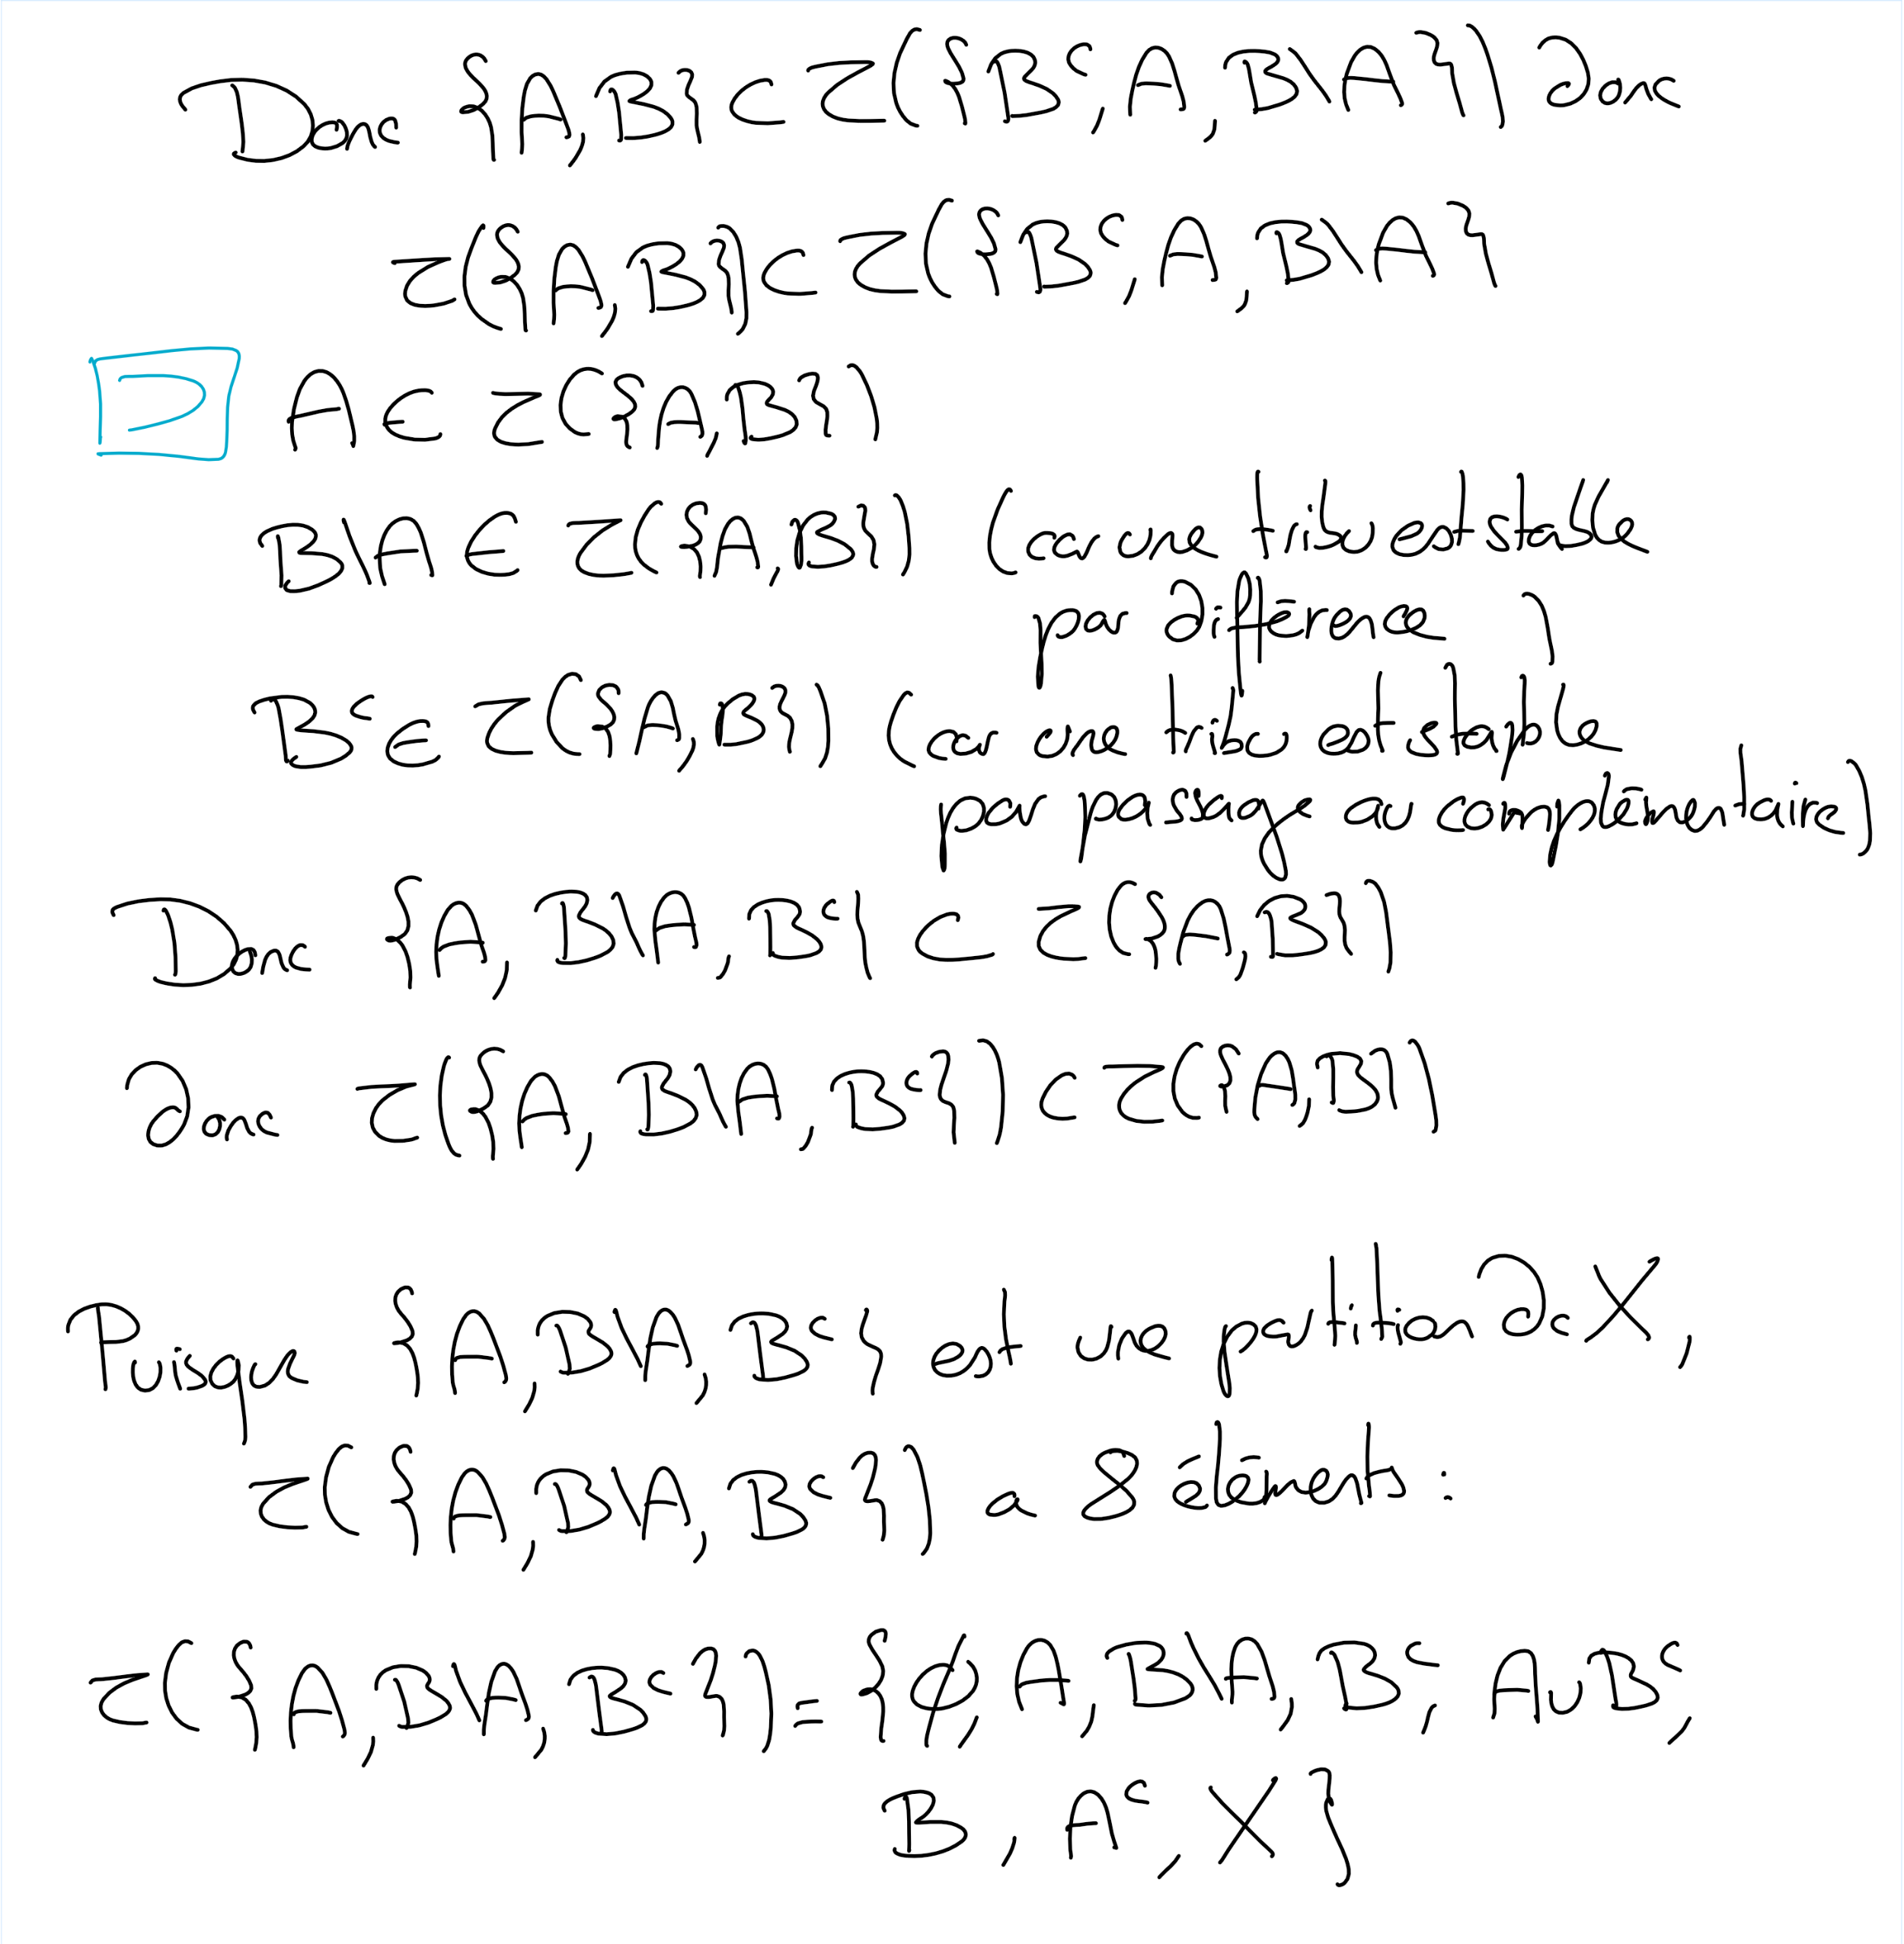 Donc {A, B} ⊂ Z({B^c, A, B\A}) donc
Z({A, B}) ⊂ Z({B^c, A, B\A}
⊃ A ∈ Z({A, B})
B\A ∈ Z({A, B}) (car une tribu est stable
par différence)
B^c ∈ Z({A, B}) (car une tribu est stable
par passage au complémentaire)
Donc {A, B\A, B^c} ⊂ Z({A, B})
donc Z({A, B\A, B^c}) ⊂ Z({A, B})
Puisque {A, B\A, B^c} est une partition de X,
Z({A, B\A, B^c}) a 8 éléments :
Z({A, B\A, B^c}) = {∅, A, B\A, B^c, A∪B^c,
B, A^c, X}